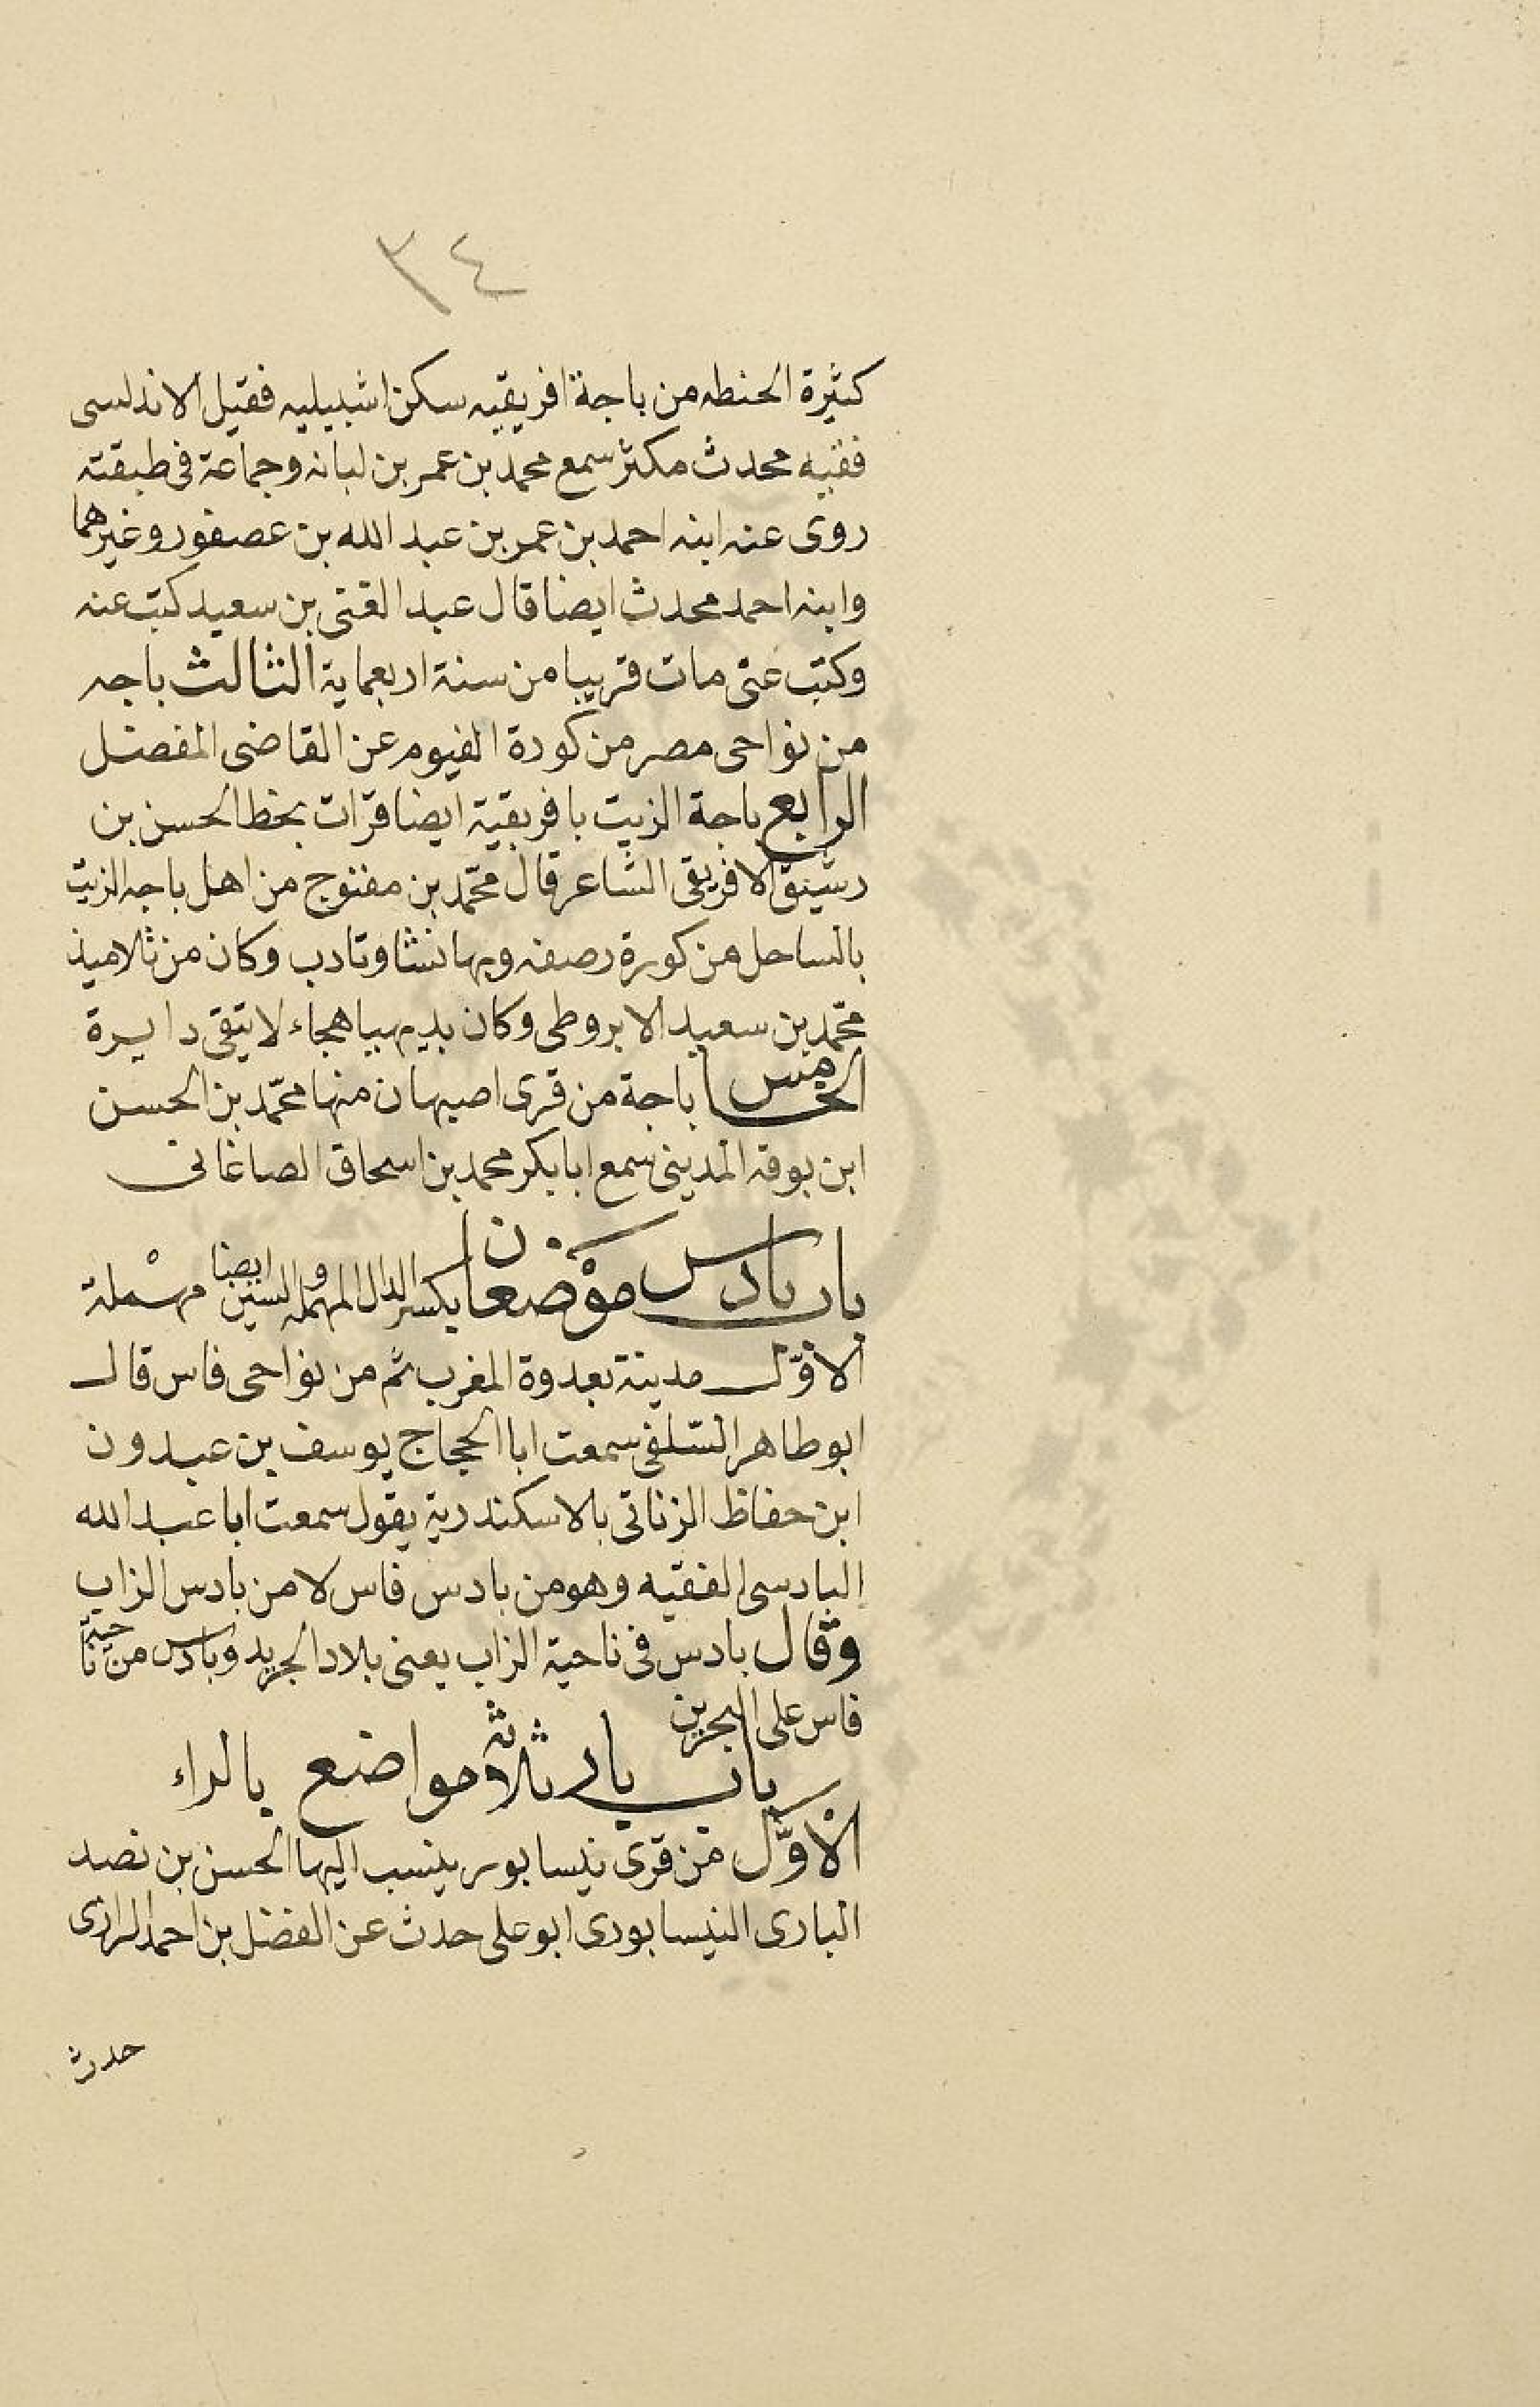 ٣٤
كثيرة الحنطه من باجة افريقيه سكن اشبيليه فقيل الاندلسى
فقيه محدث مكثر سمع محمد بن عمر بن لبانه وجماعة فى طبقته
روى عنه ابنه احمد بن عمر بن عبد الله بن عصفور وغيرهما
وابنه احمد محدث ايضا قال عبد الغنى بن سعيد كتبت عنه
وكتب عنى مات قريبا من سنة اربعماية الثالث باجه
من نواحى مصر من كورة الفيوم عن القاضى المفضل
الرابع باجة الزيت بافريقية ايضا قرات بخط الحسن بن
رشيق الافريقى الشاعر قال محمّد بن مفتوح من اهل باجه الزيت
بالساحل من كورة رصفه وبها نشا وتادب وكان من تلاميذ
محمّد بن سعيد الابروطى وكان بديهيا هجاء لا يتقى دايرة
الخامس باجة من قرى اصبهان منها محمّد بن الحسن
ابن بوقه المدينى سمع ابا بكر محمد بن اسحاق الصاغانى
باب بادس موْضعان بكسر الدال المهمله والسين ايضا مهْملة
الاوّل مدينة بعدوة المغرب ثم من نواحى فاس قال
ابو طاهر السّلفى سمعت ابا الحجاج يوسف بن عبدون
ابن حفاظ الزناتى بالاسكندرية يقول سمعت ابا عبد الله
البادسى الفقيه وهو من بادس فاس لا من بادس الزاب
وقال بادس فى ناحية الزاب يعنى بلاد الجريد وبادس من ناحية
فاس على البحرين
باب بار ثلاثة مواضع بالراء
الْاوَّل من قرى نيسابور ينسب اليها الحسن بن نصد
البارى النيسابورى ابو على حدث عن الفضل بن احمد الرازى
حدث